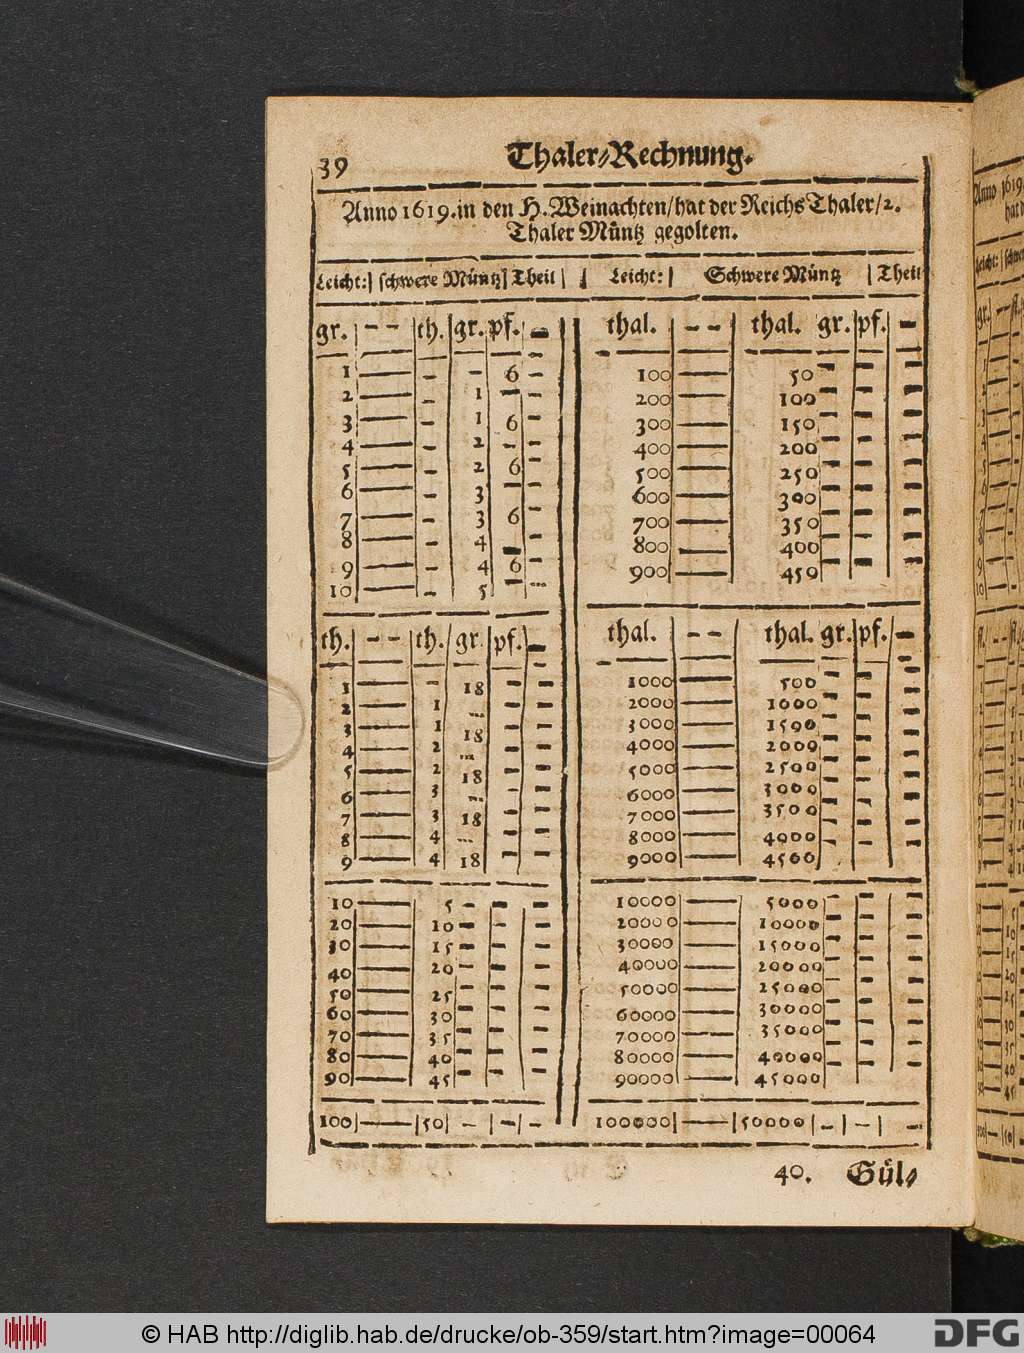 39 Thaler-Rechnung.
Anno 1619. in den H. Weinachten/hat der Reichs Thaler/2.
Thaler Müntz gegolten.
Leicht: schwere Müntz Theil
gr. – – th. gr. pf. –
1 — – – 6 –
2 — – 1 – –
3 — – 1 6 –
4 — – 2 – –
5 — – 2 6 –
6 — – 3 – –
7 — – 3 6 –
8 — – 4 – –
9 — – 4 6 –
10 — – 5 – –
th. – – th. gr. pf. –
1 — – 18 – –
2 — 1 – – –
3 — 1 18 – –
4 — 2 – – –
5 — 2 18 – –
6 — 3 – – –
7 — 3 18 – –
8 — 4 – – –
9 — 4 18 – –
10 — 5 – – –
20 — 10 – – –
30 — 15 – – –
40 — 20 – – –
50 — 25 – – –
60 — 30 – – –
70 — 35 – – –
80 — 40 – – –
90 — 45 – – –
100 — 50 – – –
Leicht: Schwere Müntz Theil
thal. – – thal. gr. pf. –
100 — 50 – – –
200 — 100 – – –
300 — 150 – – –
400 — 200 – – –
500 — 250 – – –
600 — 300 – – –
700 — 350 – – –
800 — 400 – – –
900 — 450 – – –
thal. – – thal. gr. pf. –
1000 — 500 – – –
2000 — 1000 – – –
3000 — 1500 – – –
4000 — 2000 – – –
5000 — 2500 – – –
6000 — 3000 – – –
7000 — 3500 – – –
8000 — 4000 – – –
9000 — 4500 – – –
10000 — 5000 – – –
20000 — 10000 – – –
30000 — 15000 – – –
40000 — 20000 – – –
50000 — 25000 – – –
60000 — 30000 – – –
70000 — 35000 – – –
80000 — 40000 – – –
90000 — 45000 – – –
100000 — 50000 – – –
40. Gül-
© HAB http://diglib.hab.de/drucke/ob-359/start.htm?image=00064
DFG